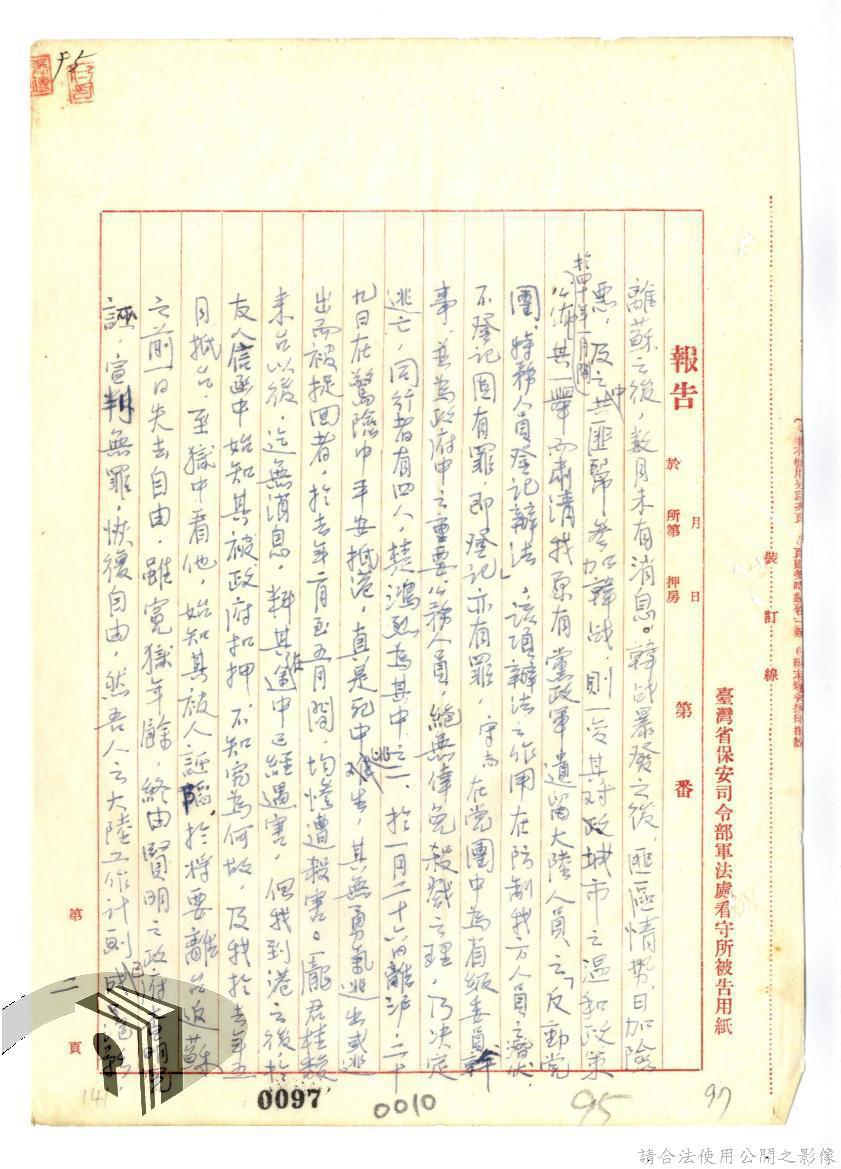 裝訂線
臺灣省保安司令部軍法處看守所被告用紙
報告
月 日
於 所第 押房
第 番
離蘇之後，數月未有消息。韓战暴發之後，匪區情势，日加險
惡，及之中共匪幫参加韓战，則一变其对政城市之温和政策
於四十年一月間公佈其一舉而肅清我原有黨政軍遺留大陸人員之「反動党
團，特務人員登記辦法」，該項辦法之作用在防制我方人員之潛伏，
不登記固有罪，即登記亦有罪，守志在党團中為省級委員幹
事，並為政府中之重要公務人員，絕無倖免殺戮之理，乃决定
逃亡，同行者有四人，龚鴻烈為其中之一，於一月二十六日離沪，二十
九日在驚險中平安抵港，真是死中逃生，其無勇氣逃出或逃
出而被捉回者，於去年二月至五月間，均慘遭殺害。龎君桂馥
来台以後，迄無消息，料其在途中已經遇害，但我到港之後，於
友人信函中始知其被政府扣押，不知究為何故，及我於去年五
月抵台，至獄中看他，始知其被人誣陷，於將要離台返蘇
之前一日失去自由，雖冤獄年餘，終由賢明之政府查明冤
誣，宣判無罪，恢復自由，然吾人之大陸工作計劃已成
第 二 頁
0097
0010
95
97
141
請合法使用公開之影像